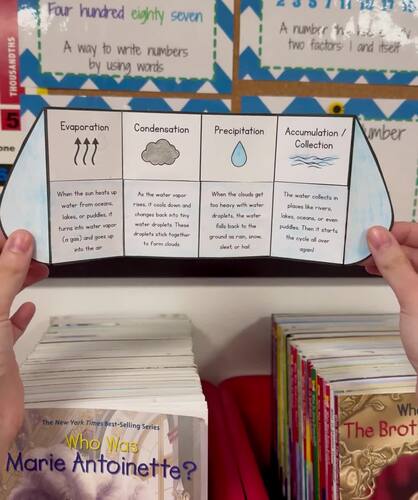 Four hundred eighty seven
A way to write numbers
by using words
two factors: 1 and itself
THOUSANDTHS
5
Evaporation
When the sun heats up
water from oceans,
lakes, or puddles, it
turns into water vapor
(a gas) and goes up
into the air
Condensation
As the water vapor
rises, it cools down and
changes back into tiny
water droplets. These
droplets stick together
to form clouds
Precipitation
When the clouds get
too heavy with water
droplets, the water
falls back to the
ground as rain, snow,
sleet or hail
Accumulation /
Collection
The water collects in
places like rivers,
lakes, oceans, or even
puddles. Then it starts
the cycle all over
again!
The New York Times Best-Selling Series
Who Was
Marie Antoinette?
The Brot